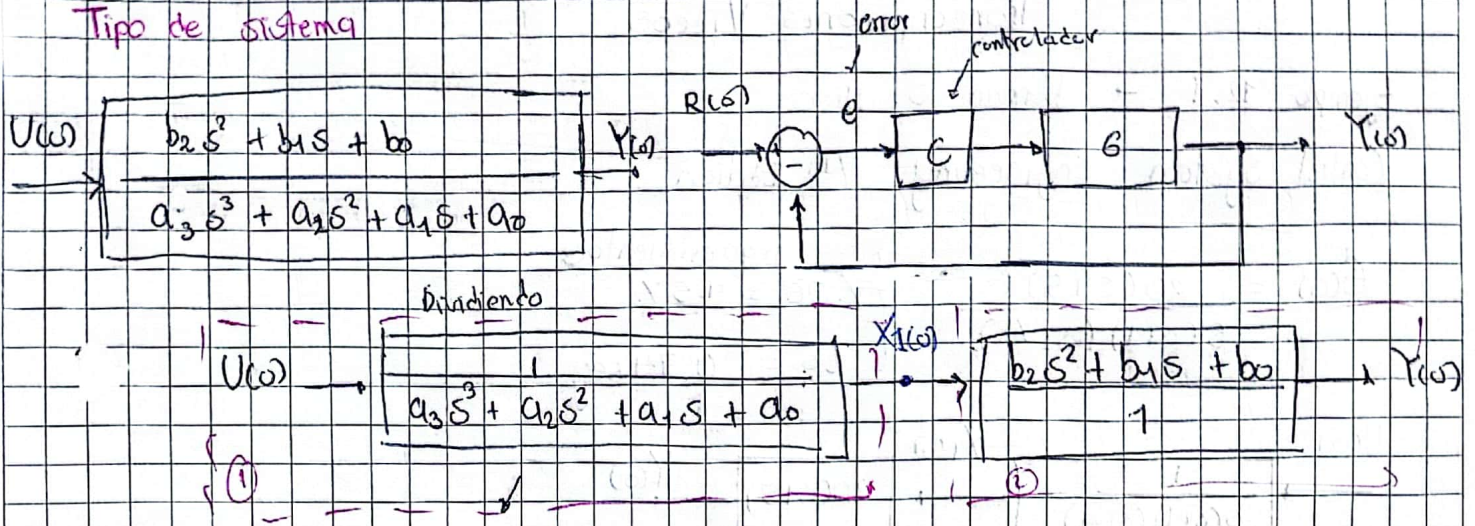 Tipo de sistema
error
controlador
U(s)
b₂s² + b₁s + b₀
a₃s³ + a₂s² + a₁s + a₀
Y(s)
R(s)
e
-
C
G
Y(s)
Dividiendo
U(s)
1
a₃s³ + a₂s² + a₁s + a₀
X1(s)
b₂s² + b₁s + b₀
1
Y(s)
①
②